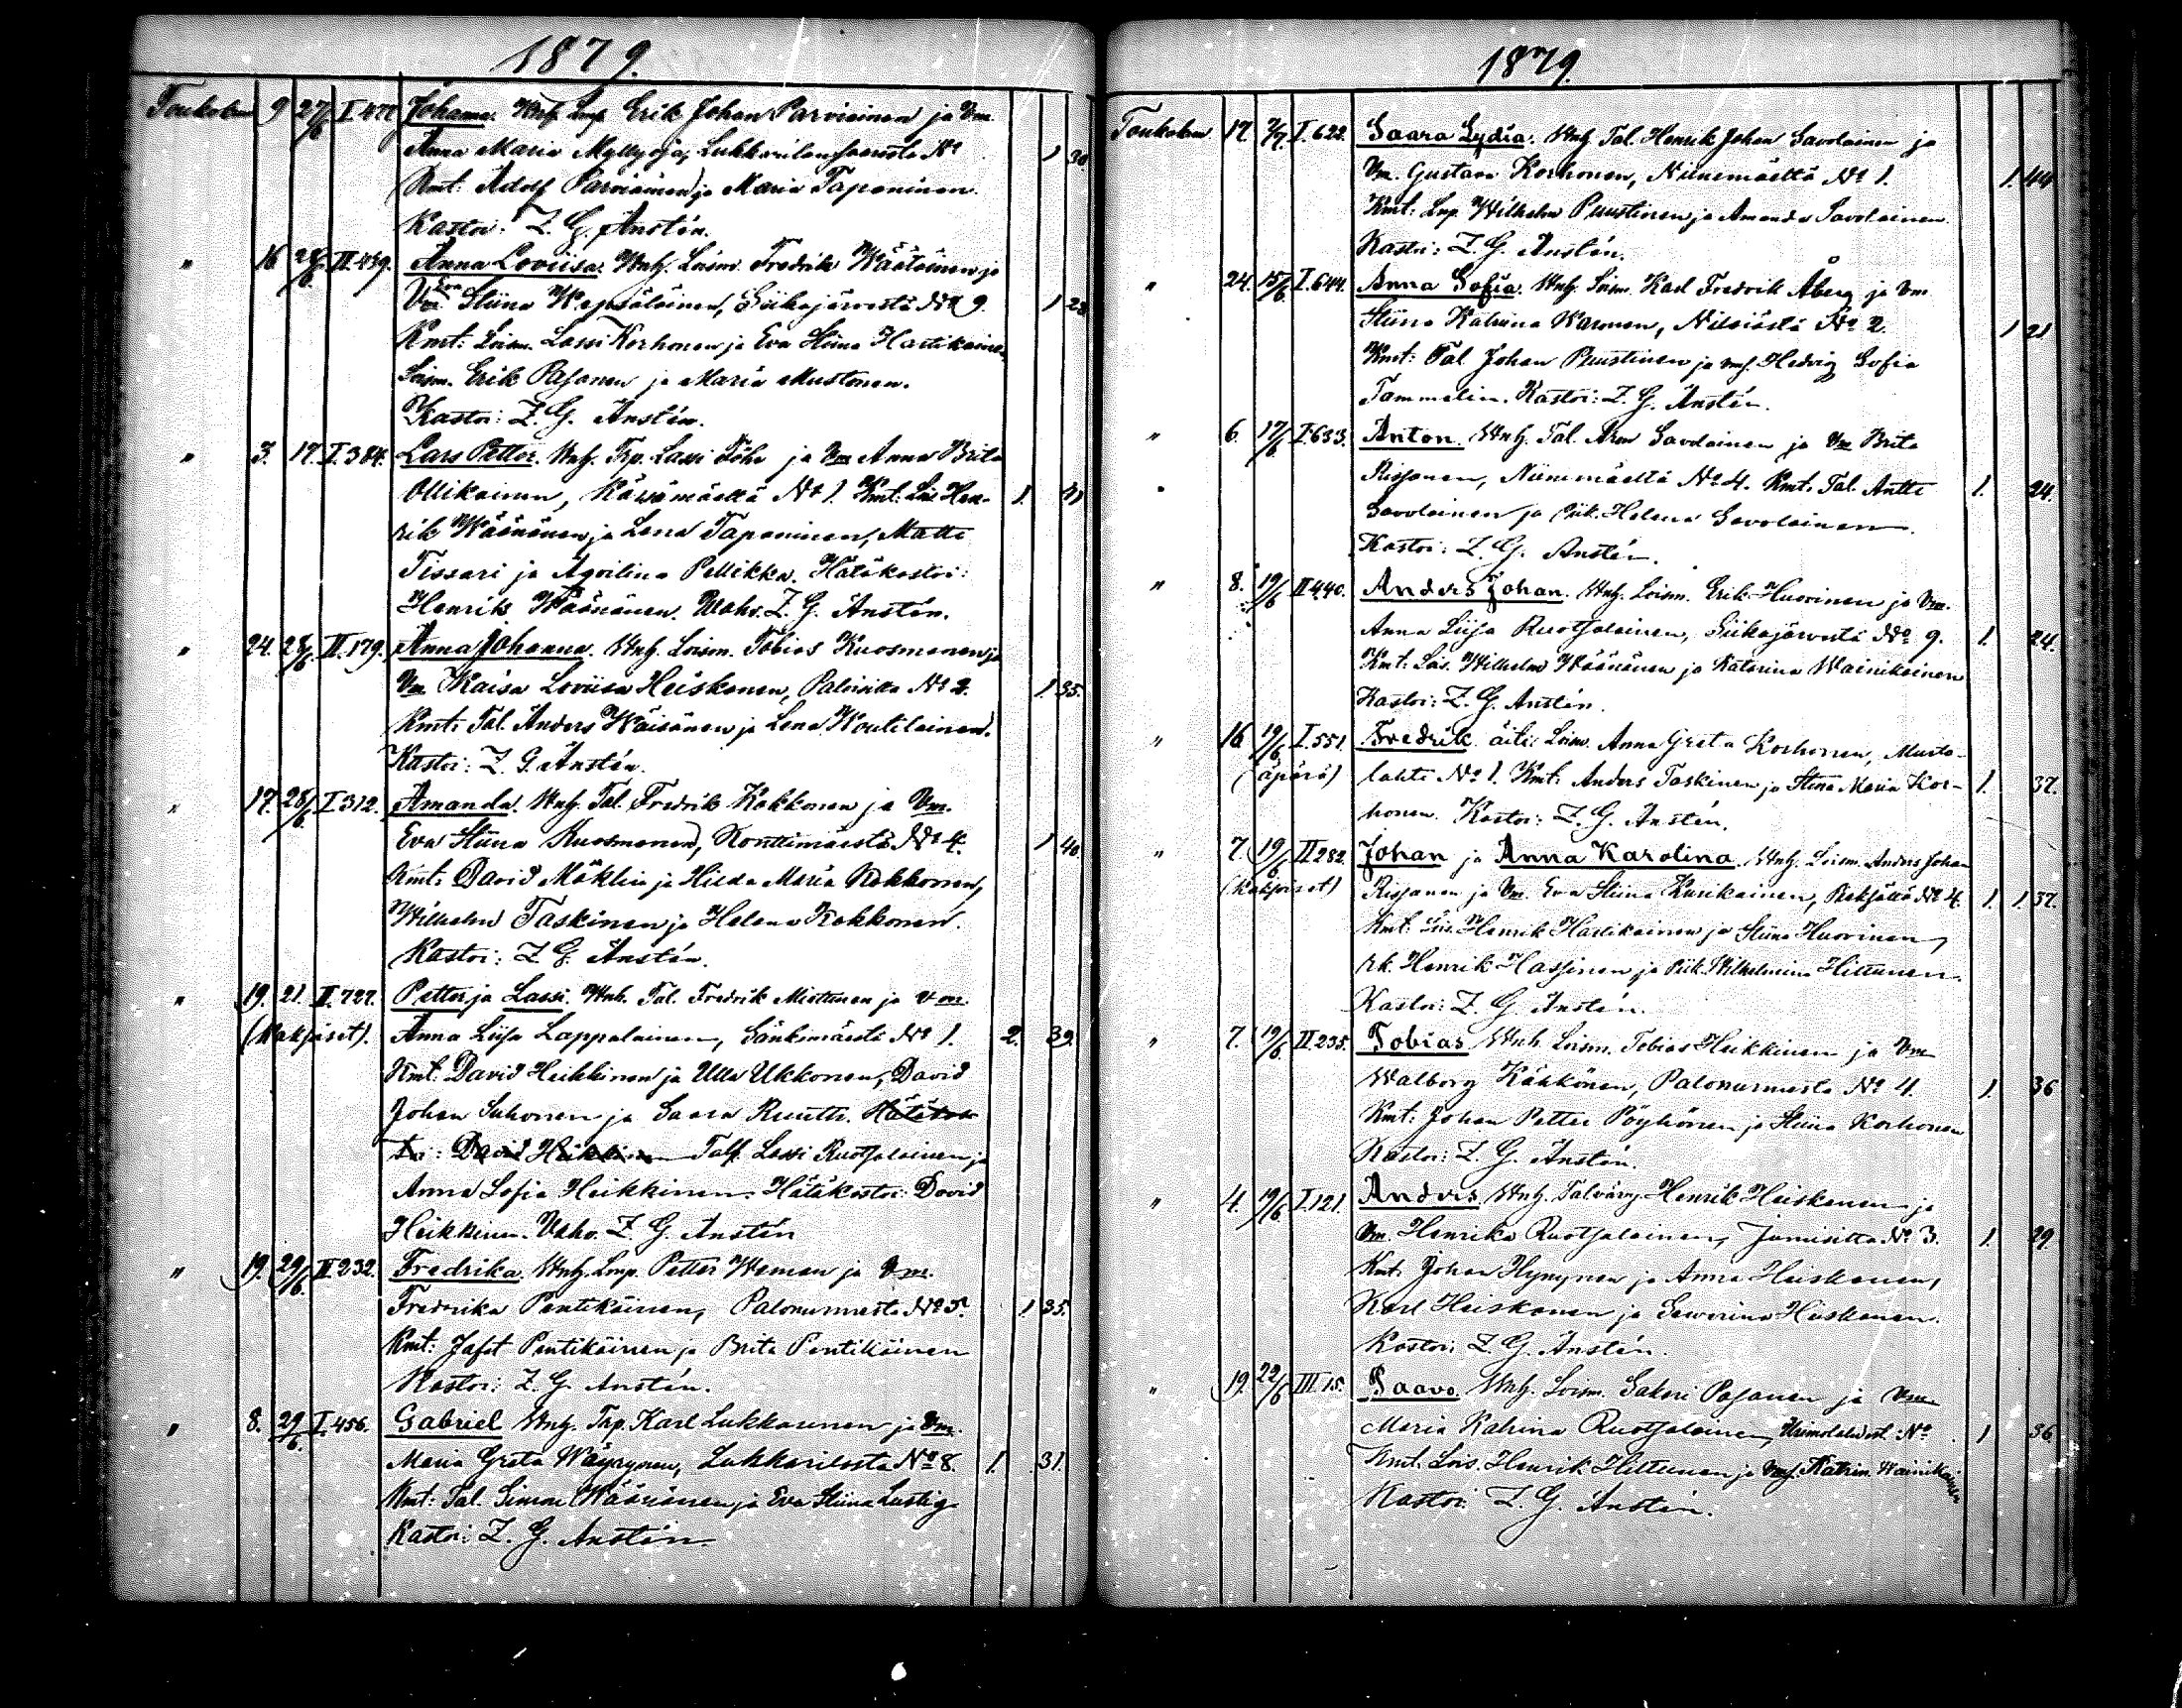 1879.
Toukokuu 9 27/6 I.477 Johanna. Vnh. Lmp. Erik Johan Parviainen ja Vm.
Anna Maria Myllyoja, Lukkarilansaaresta No 1 30.
Kmt: Adolf Parviainen ja Maria Taponinen.
Kastoi: Z. G. Anstén.
" 16 28/6 II.439. Anna Loviisa. Vnh. Loism. Fredrik Wäätäinen ja
Vm. Eva Stiina Wepsäläinen, Siikajärvestä No 9. 1 28
Kmt: Loism. Lassi Korhonen ja Eva Stiina Hartikainen
Loism. Erik Pasanen ja Maria Mustonen.
Kastoi: Z. G. Anstén.
" 3. 17. I.384. Lars Petter. Vnh. Trp. Lassi Föhr ja Vm Anna Brita
Ollikainen, Kärsämäeltä No 1. Kmt: Lois Hen- 1. 41
rik Wäänänen ja Lena Taponinen, Matti
Tissari ja Aqvilina Pellikka. Hätäkastoi:
Henrik Wäänänen. Vahv. Z. G. Anstén.
" 24. 28/6. II.179. Anna Johanna. Vnh. Loism. Tobias Kuosmanen ja
Vm Kaisa Loviisa Heiskanen, Paloisilta No 2. 1 35.
Kmt: Tal. Anders Wäisänen ja Lena Woutilainen.
Kastoi: Z. G. Anstén.
" 17. 28/6. I.312. Amanda. Vnh. Tal. Fredrik Kokkonen ja Vm.
Eva Stiina Kuosmanen, Konttimäestä No 4. 1 40.
Kmt: David Mäklin ja Hilda Maria Kokkonen,
Wilhelm Taskinen ja Helena Kokkonen.
Kastoi: Z. G. Anstén.
" 19. 21. II.727. Petter ja Lassi. Vnh. Tal. Fredrik Miettunen ja Vm.
(Kaksiset). Anna Liisa Lappalainen, Sänkimäestä No 1. 2. 39.
Kmt: David Heikkinen ja Ulla Ukkonen, David
Johan Suhonen ja Saara Ruutti. Hätäkas
toi: David Heikkinen Talp. Lassi Ruotsalainen ja
Anna Sofia Heikkinen. Hätäkastoi: David
Heikkinen. Vahv. Z. G. Anstén
" 19. 29/6. II.232. Fredrika. Vnh. Lmp. Petter Weman ja Vm.
Fredrika Pentikäinen, Palonurmesta No 5. 1 35.
Kmt: Jafet Pentikäinen ja Brita Pentikäinen
Kastoi: Z. G. Anstén.
" 8. 29/6. I.456. Gabriel Vnh. Trp. Karl Lukkarinen ja Vm.
Maria Greta Wäyrynen, Lukkarilasta No 8. 1. 31.
Kmt: Tal. Simon Wäänänen ja Eva Stiina Lustig
Kastoi: Z. G. Anstén
1879.
Toukokuu 17. 7/7. I.622. Saara Lydia. Vnh. Tal. Henrik Johan Savolainen ja
Vm. Gustava Korhonen, Niinimäeltä No 1. 1. 44
Kmt: Lmp. Wilhelm Puustinen ja Amanda Savolainen.
Kastoi: Z. G. Anstén.
" 24. 15/6 I.644. Anna Sofia. Vnh. Loism. Karl Fredrik Åberg ja Vm.
Stiina Katriina Karonen, Nilsiästä No 2. 1 21
Kmt: Tal Johan Puustinen ja vmf. Hedvig Sofia
Tammelin. Kastoi: Z. G. Anstén.
" 6. 17/6 I.633. Anton. Vnh. Tal. Aron Savolainen ja Vm Brita
Rissanen, Niinimäeltä No 4. Kmt. Tal. Antti 1. 24.
Savolainen ja Piik. Helena Savolainen.
Kastoi: Z. G. Anstén.
" 8. 19/6 II.440. Anders Johan. Vnh. Loism. Erik Huorinen ja Vm.
Anna Liisa Ruotsalainen, Siikajärvestä No 9. 1. 24.
Kmt: Lois. Wilhelm Wäänänen ja Katarina Wainikainen
Kastoi: Z. G. Anstén.
" 16 19/6 I.551. Fredrik. äiti: Loism. Anna Greta Korhonen, Musta-
(äpärä) lahti No 1. Kmt: Anders Taskinen ja Stina Maria Kor- 1. 37.
honen. Kastoi: Z. G. Anstén.
" 7. 19/6 II.282. Johan ja Anna Karolina. Vnh. Loism. Anders Johan
(Kaksiset) Rissanen ja Vm. Eva Stiina Kurikainen, No 4. 1. 1. 37.
Kmt. Lois. Henrik Hartikainen ja Stiina Huorinen,
rk. Henrik Hassinen ja Piik. Wilhelmina Hiltunen.
Kastoi: Z. G. Anstén.
" 7. 19/6 II.235. Tobias Vnh Loism. Tobias Heikkinen ja Vm
Walborg Käkkönen, Palonurmesta No 4. 1. 36
Kmt: Johan Petter Pöyhönen ja Stiina Korhonen
Kastoi: Z. G. Anstén.
" 4. 19/6 I.121. Anders Vnh. Talvävy Henrik Heiskanen ja
Vm. Henrika Ruotsalainen, Jumisilta No 3. 1. 29.
Kmt: Johan Hynynen ja Anna Heiskanen,
Karl Heiskanen ja Sewerina Heiskanen.
Kastoi: Z. G. Anstén.
" 19. 22/6 III.15. Paavo. Vnh. Loism. Sakari Pasanen ja Vm
Maria Katrina Ruotsalainen, No 1 36
Kmt. Lois. Henrik Hiltunen ja vmf. Katrin. Wainikainen
Kastoi: Z. G. Anstén.